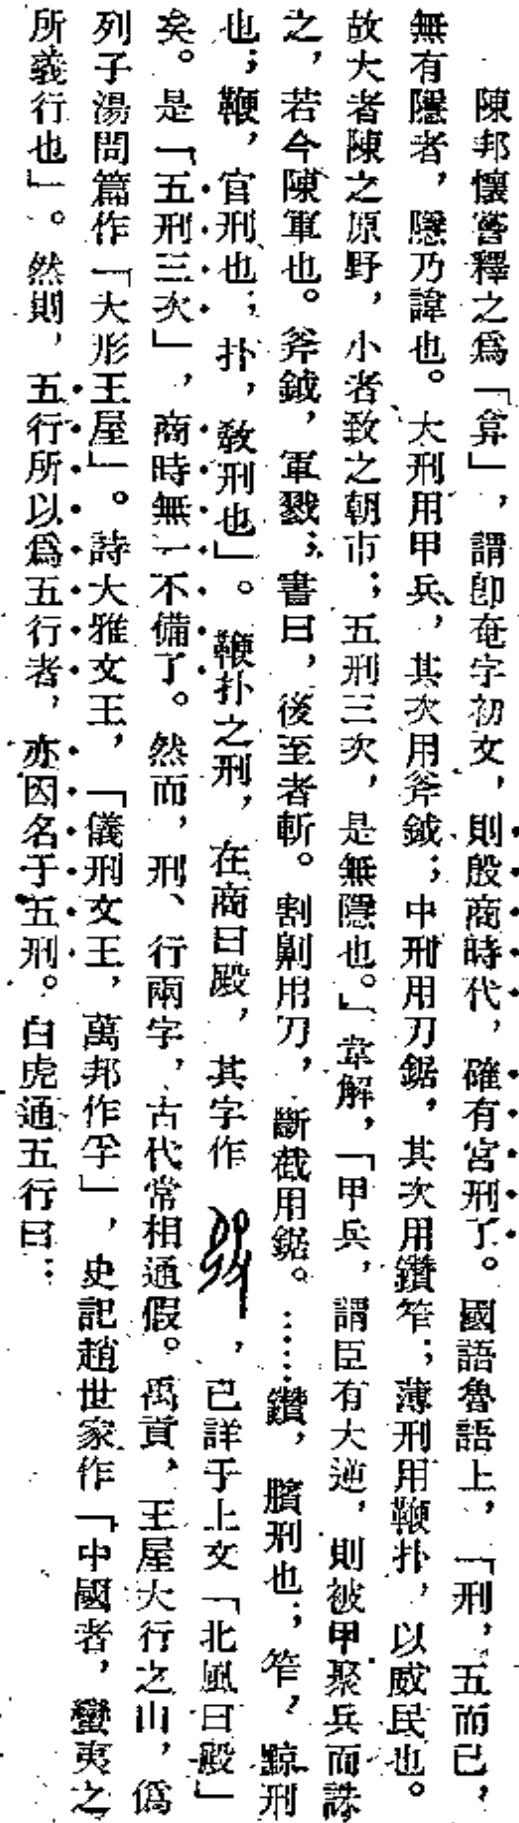 陳邦懷嘗釋之爲「弇」，謂卽奄字初文，則殷商時代，確有宮刑了。國語魯語上，「刑，五而已，
無有隱者，隱乃諱也。大刑用甲兵，其次用斧鉞；中刑用刀鋸，其次用鑽笮；薄刑用鞭扑，以威民也。
故大者陳之原野，小者致之朝市；五刑三次，是無隱也。」韋解，「甲兵，謂臣有大逆，則被甲聚兵而誅
之，若今陳軍也。斧鉞，軍戮；書曰，後至者斬。割劓用刀，斷截用鋸。……鑽，臏刑也；笮，黥刑
也；鞭，官刑也；扑，敎刑也」。鞭扑之刑，在商曰殹，其字作，已詳于上文「北風曰殹」
矣。是「五刑三次」，商時無一不備了。然而，刑、行兩字，古代常相通假。禹貢，王屋大行之山，僞
列子湯問篇作「大形王屋」。詩大雅文王，「儀刑文王，萬邦作孚」，史記趙世家作「中國者，蠻夷之
所義行也」。然則，五行所以爲五行者，亦因名于五刑。白虎通五行曰：